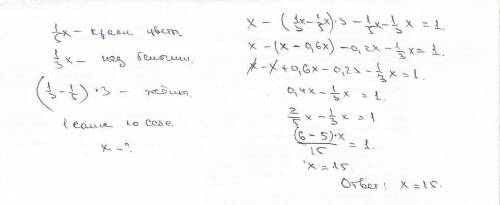 1/5x – красн. цветы
1/3x – над белыми.
(1/3 – 1/5) · 3 –
1
x – ?
x – (1/3x – 1/5x) · 3 – 1/5x – 1/3x = 1.
x – (x – 0,6x) – 0,2x – 1/3x = 1.
x – x + 0,6x – 0,2x – 1/3x = 1.
0,4x – 1/3x = 1.
2/5x – 1/3x = 1
(6 – 5) · x / 15 = 1.
x = 15.
Ответ: x = 15.